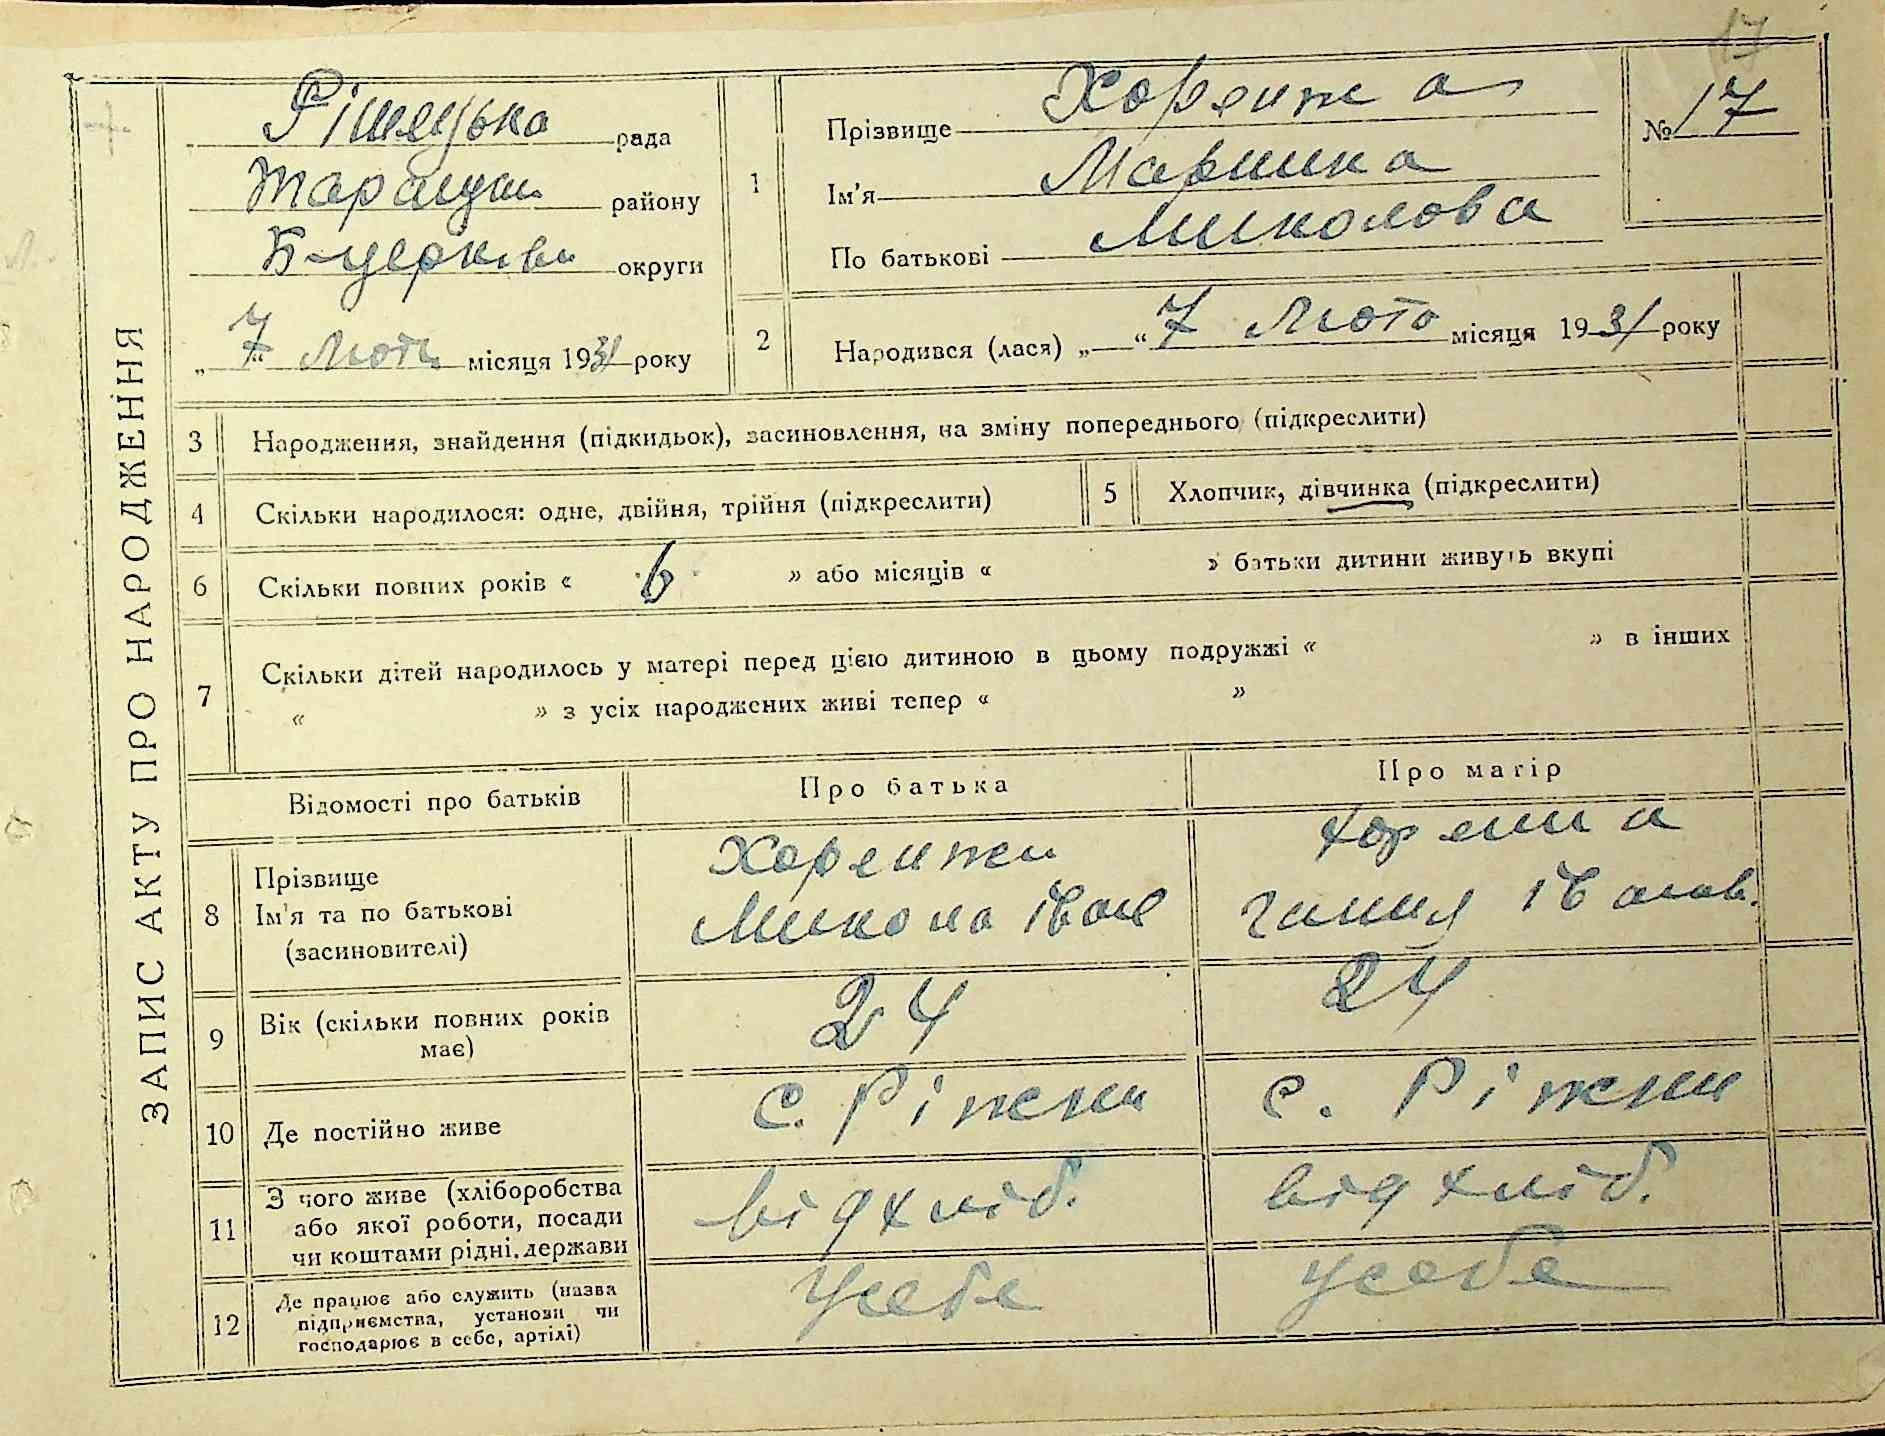 17
ЗАПИС АКТУ ПРО НАРОДЖЕННЯ
рада
району
Б-церківки округи
„7“ Лютц місяця 1931 року
1
Прізвище Хоренжа
Ім'я Маринка
По батькові Миколова
№ 17
2 Народився (лася) „ “ 7 Люто місяця 1931 року
3 Народження, знайдення (підкидьок), засиновлення, на зміну попереднього (підкреслити)
4 Скільки народилося: одне, двійня, трійня (підкреслити)
5 Хлопчик, дівчинка (підкреслити)
6 Скільки повних років « 6 » або місяців « » батьки дитини живуть вкупі
7 Скільки дітей народилось у матері перед цією дитиною в цьому подружжі « » в інших
« » з усіх народжених живі тепер « »
Відомості про батьків
Про батька
Про матір
8 Прізвище
Ім'я та по батькові
(засиновителі)
Хоренжи
Микола Іван
Гання Іванов.
9 Вік (скільки повних років
має)
24
24
10 Де постійно живе
с. Ріжки
с. Ріжки
11 З чого живе (хліборобства
або якої роботи, посади
чи коштами рідні, держави
від хліб.
від хліб.
12 Де працює або служить (назва
підприємства, установи чи
господарює в себе, артілі)
У себе
У себе